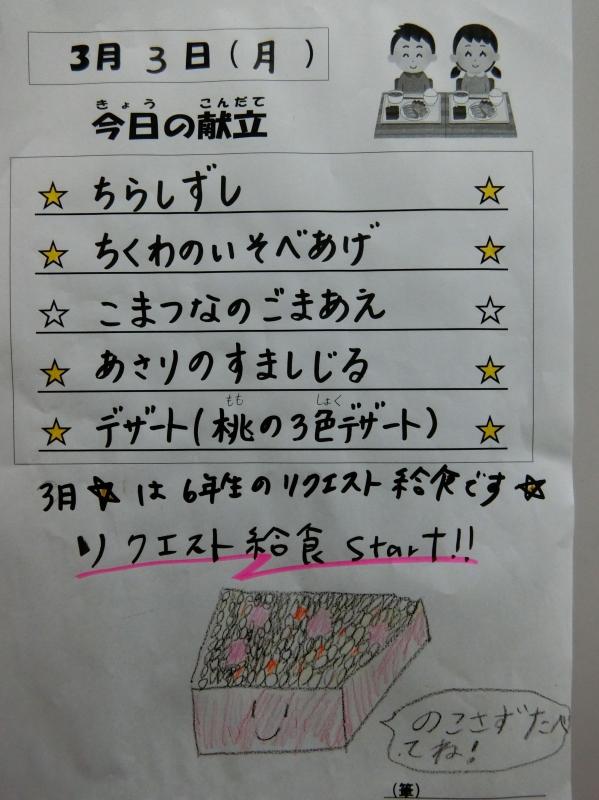 3月 3 日(月)
きょう こんだて
今日の献立
☆ ちらしずし ☆
☆ ちくわのいそべあげ ☆
☆ こまつなのごまあえ ☆
☆ あさりのすましじる ☆
もも しょく
☆ デザート(桃の3色デザート) ☆
3月☆は6年生のリクエスト給食です☆
リクエスト給食 Start!!
のこさずたべ
てね!
(筆)